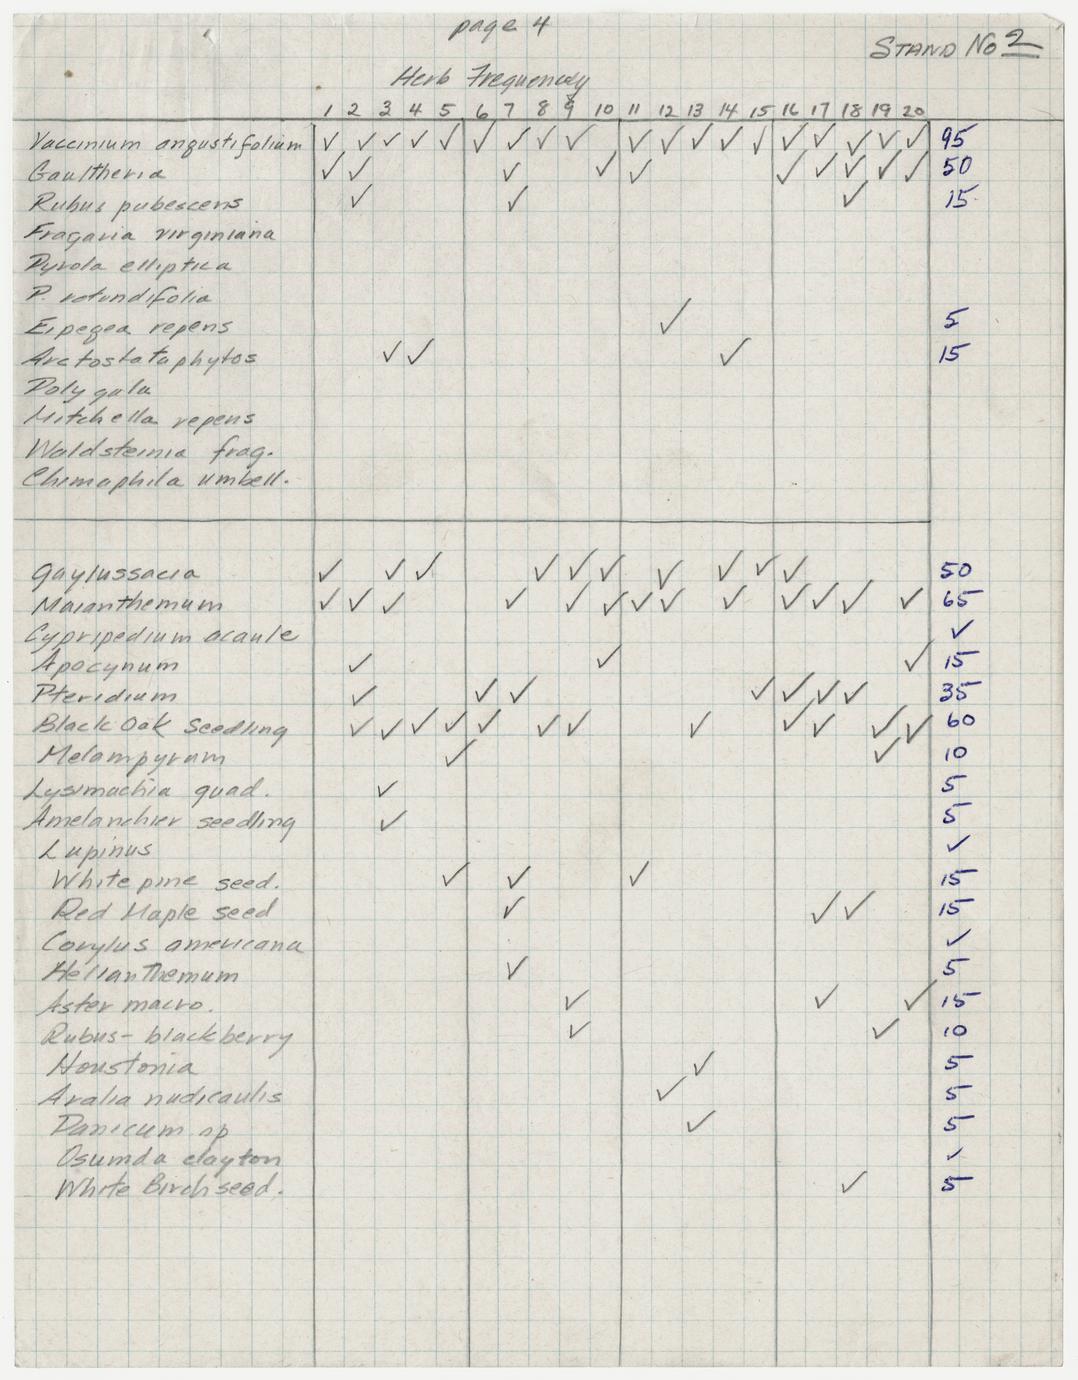 page 4
STAND No 2
Herb Frequency
1 2 3 4 5 6 7 8 9 10 11 12 13 14 15 16 17 18 19 20
Vaccinium angustifolium ✓ ✓ ✓ ✓ ✓ ✓ ✓ ✓ ✓ ✓ ✓ ✓ ✓ ✓ ✓ ✓ ✓ ✓ ✓ 95
Gaultheria ✓ ✓ ✓ ✓ ✓ ✓ ✓ ✓ ✓ ✓ 50
Rubus pubescens ✓ ✓ ✓ 15
Fragaria virginiana
Pyrola elliptica
P. rotundifolia
Eipegea repens ✓ 5
Arctostataphytos ✓ ✓ ✓ 15
Polygala
Mitchella repens
Waldsteinia frag.
Chimaphila umbell.
Gaylussacia ✓ ✓ ✓ ✓ ✓ ✓ ✓ ✓ ✓ ✓ 50
Maianthemum ✓ ✓ ✓ ✓ ✓ ✓ ✓ ✓ ✓ ✓ ✓ ✓ ✓ 65
Cypripedium acaule ✓
Apocynum ✓ ✓ ✓ 15
Pteridium ✓ ✓ ✓ ✓ ✓ ✓ ✓ 35
Black Oak Seedling ✓ ✓ ✓ ✓ ✓ ✓ ✓ ✓ ✓ ✓ ✓ ✓ 60
Melampyrum ✓ ✓ 10
Lysimachia quad. ✓ 5
Amelanchier seedling ✓ 5
Lupinus ✓
White pine seed. ✓ ✓ ✓ 15
Red Maple seed ✓ ✓ ✓ 15
Corylus americana ✓
Helianthemum ✓ 5
Aster macro. ✓ ✓ ✓ 15
Rubus - blackberry ✓ ✓ 10
Houstonia ✓ 5
Aralia nudicaulis ✓ 5
Panicum sp ✓ 5
Osumda clayton ✓
White Birch seed. ✓ 5